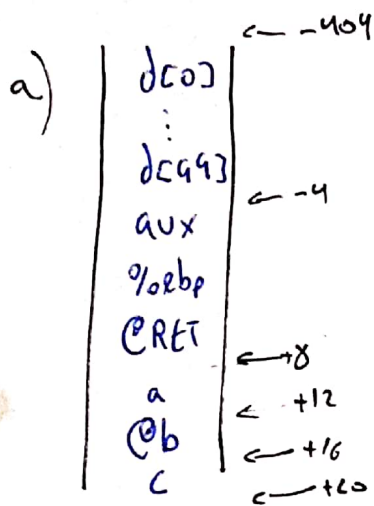 a)
← -404
d[0]
⋮
d[99]
← -4
aux
%ebp
@RET
← +8
a
← +12
@b
← +16
c
← +20